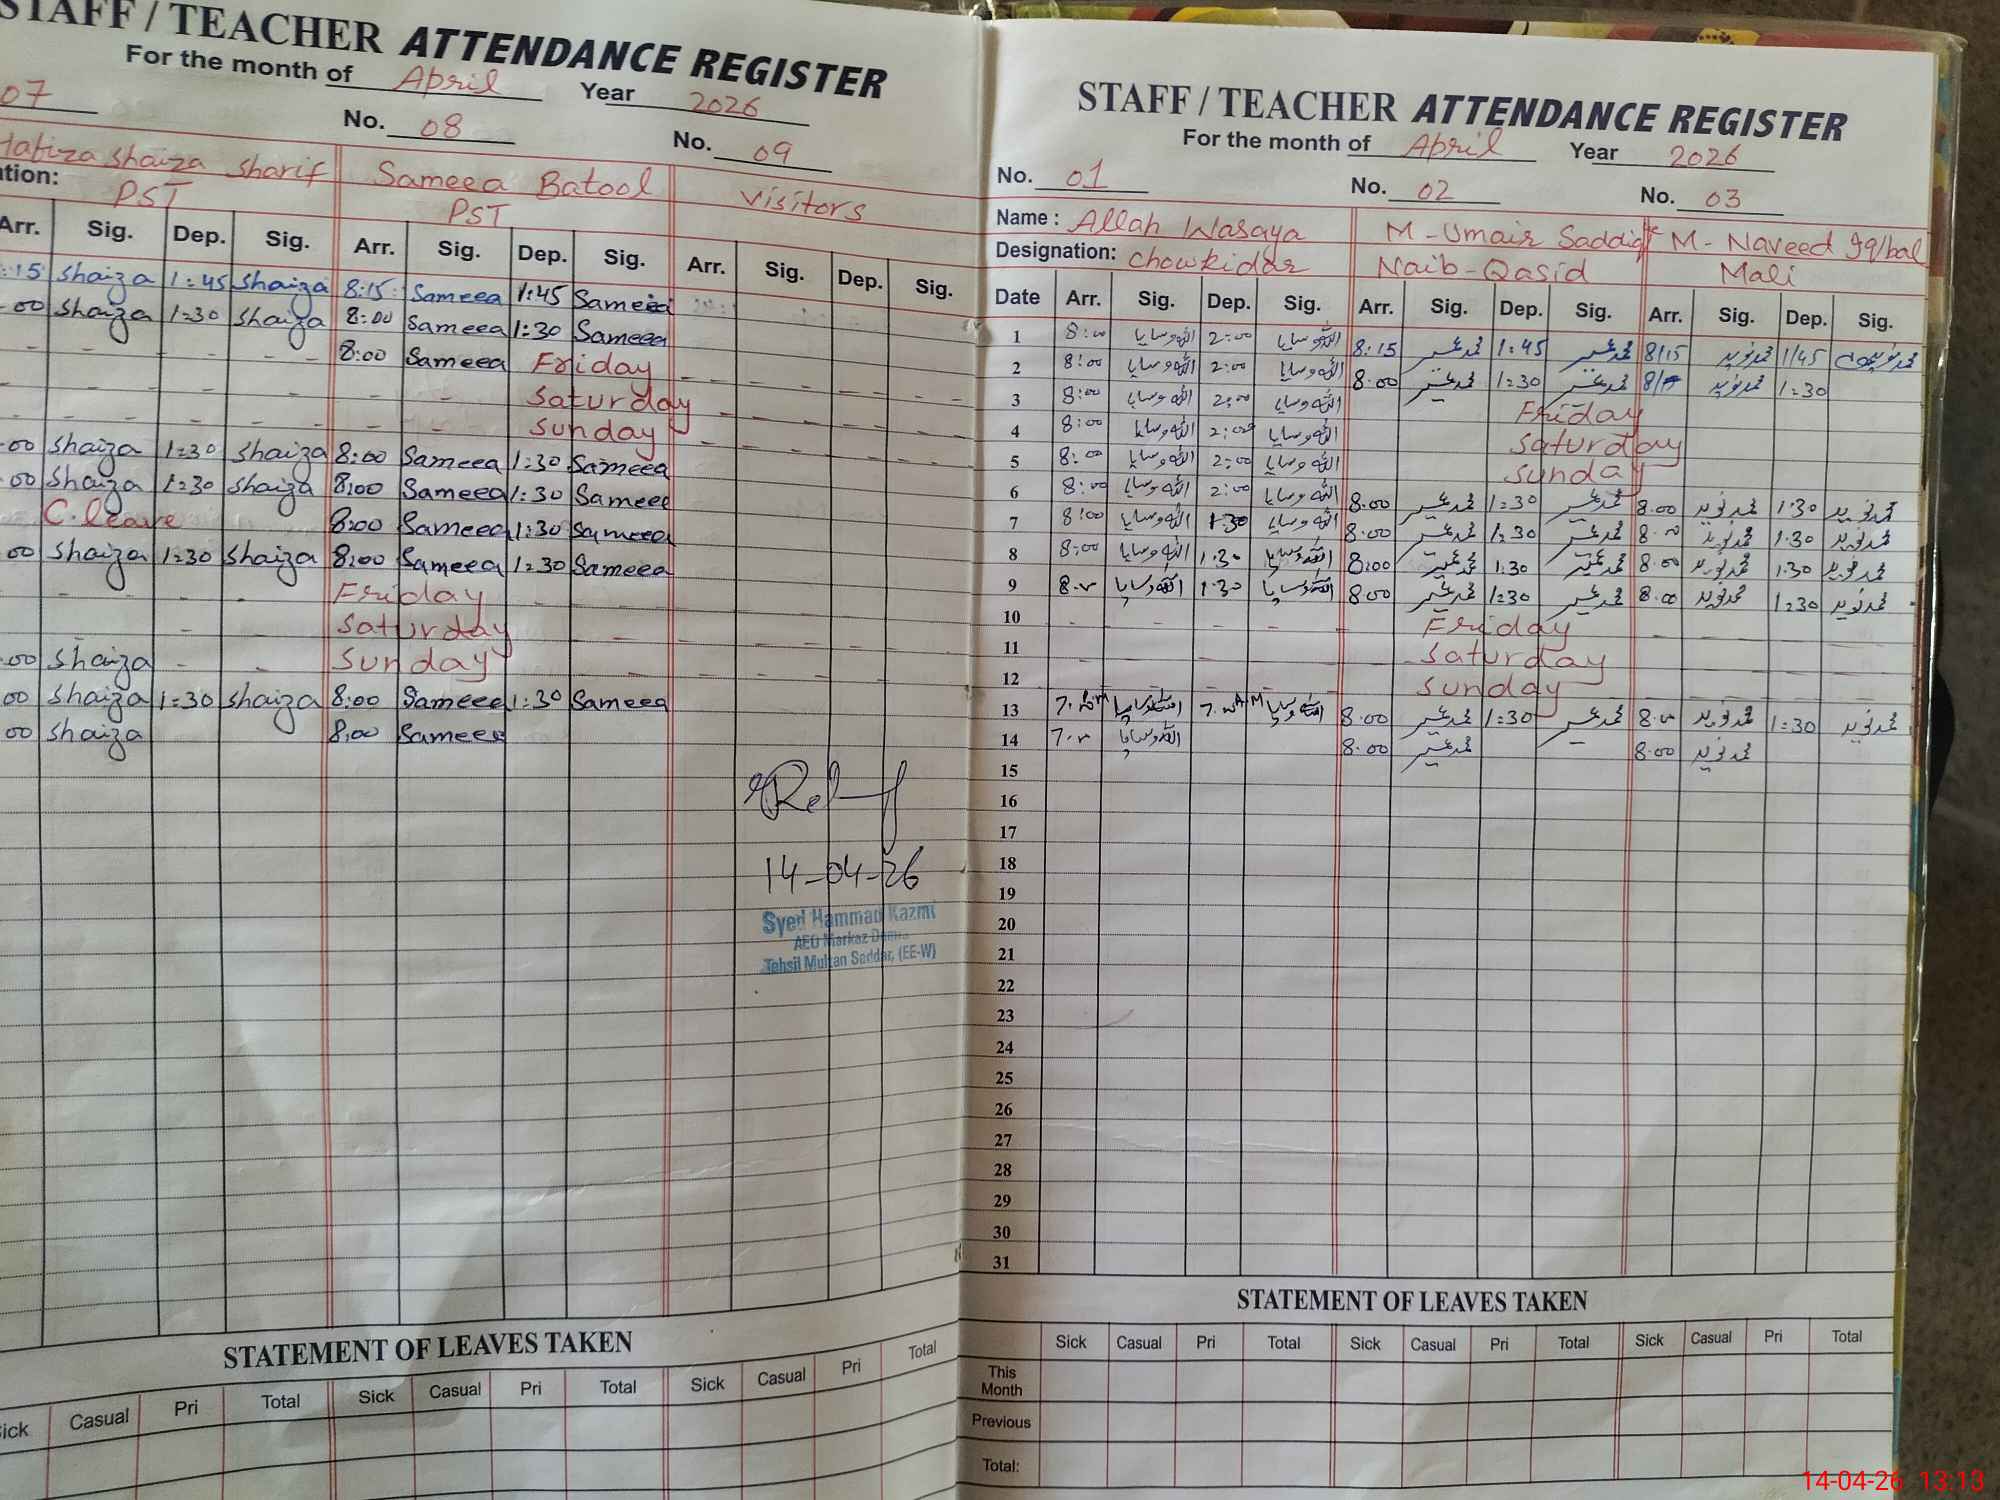 STAFF / TEACHER ATTENDANCE REGISTER
For the month of April Year 2026
07 No. 08 No. 09
Hafiza Shaiza Sharif Sameea Batool Visitors
PST PST
Arr. Sig. Dep. Sig. Arr. Sig. Dep. Sig. Arr. Sig. Dep. Sig.
:15 Shaiza 1:45 Shaiza 8:15 Sameea 1:45 Sameea
:00 Shaiza 1:30 Shaiza 8:00 Sameea 1:30 Sameea
8:00 Sameea Friday
Saturday
Sunday
:00 Shaiza 1:30 Shaiza 8:00 Sameea 1:30 Sameea
:00 Shaiza 1:30 Shaiza 8:00 Sameea 1:30 Sameea
C. leave 8:00 Sameea 1:30 Sameea
00 Shaiza 1:30 Shaiza 8:00 Sameea 1:30 Sameea
Friday
Saturday
:00 Shaiza Sunday
00 Shaiza 1:30 Shaiza 8:00 Sameea 1:30 Sameea
00 Shaiza 8:00 Sameea
14-04-26
Syed Hammad Kazmi
AEO Markaz
Tehsil Multan Saddar, (EE-W)
STATEMENT OF LEAVES TAKEN
Sick Casual Pri Total Sick Casual Pri Total Sick Casual Pri Total
STAFF / TEACHER ATTENDANCE REGISTER
For the month of April Year 2026
No. 01 No. 02 No. 03
Name : Allah Wasaya M-Umair Saddiq M-Naveed Iqbal
Designation: Chowkidar Naib-Qasid Mali
Date Arr. Sig. Dep. Sig. Arr. Sig. Dep. Sig. Arr. Sig. Dep. Sig.
1 8:00 اللہ وسایا 2:00 اللہ وسایا 8:15 محمد عمیر 1:45 محمد عمیر 8/15 محمد نوید 1/45 محمد نوید
2 8:00 اللہ وسایا 2:00 اللہ وسایا 8:00 محمد عمیر 1:30 محمد عمیر محمد نوید 1:30
3 8:00 اللہ وسایا 2:00 اللہ وسایا Friday
4 8:00 اللہ وسایا 2:00 اللہ وسایا Saturday
5 8:00 اللہ وسایا 2:00 اللہ وسایا Sunday
6 8:00 اللہ وسایا 2:00 اللہ وسایا 8:00 محمد عمیر 1:30 محمد عمیر 8.00 محمد نوید 1:30 محمد نوید
7 8:00 اللہ وسایا 1:30 اللہ وسایا 8:00 محمد عمیر 1:30 محمد عمیر 8.00 محمد نوید 1:30 محمد نوید
8 8:00 اللہ وسایا 1:30 اللہ وسایا 8:00 محمد عمیر 1:30 محمد عمیر 8.00 محمد نوید 1:30 محمد نوید
9 8.00 اللہ وسایا 1:30 اللہ وسایا 8:00 محمد عمیر 1:30 محمد عمیر 8.00 محمد نوید 1:30 محمد نوید
10 Friday
11 Saturday
12 Sunday
13 اللہ وسایا اللہ وسایا 8:00 محمد عمیر 1:30 محمد عمیر 8.00 محمد نوید 1:30 محمد نوید
14 7.00 اللہ وسایا 8:00 محمد عمیر 8.00 محمد نوید
15
16
17
18
19
20
21
22
23
24
25
26
27
28
29
30
31
STATEMENT OF LEAVES TAKEN
Sick Casual Pri Total Sick Casual Pri Total Sick Casual Pri Total
This Month
Previous
Total:
14-04-26 13:13